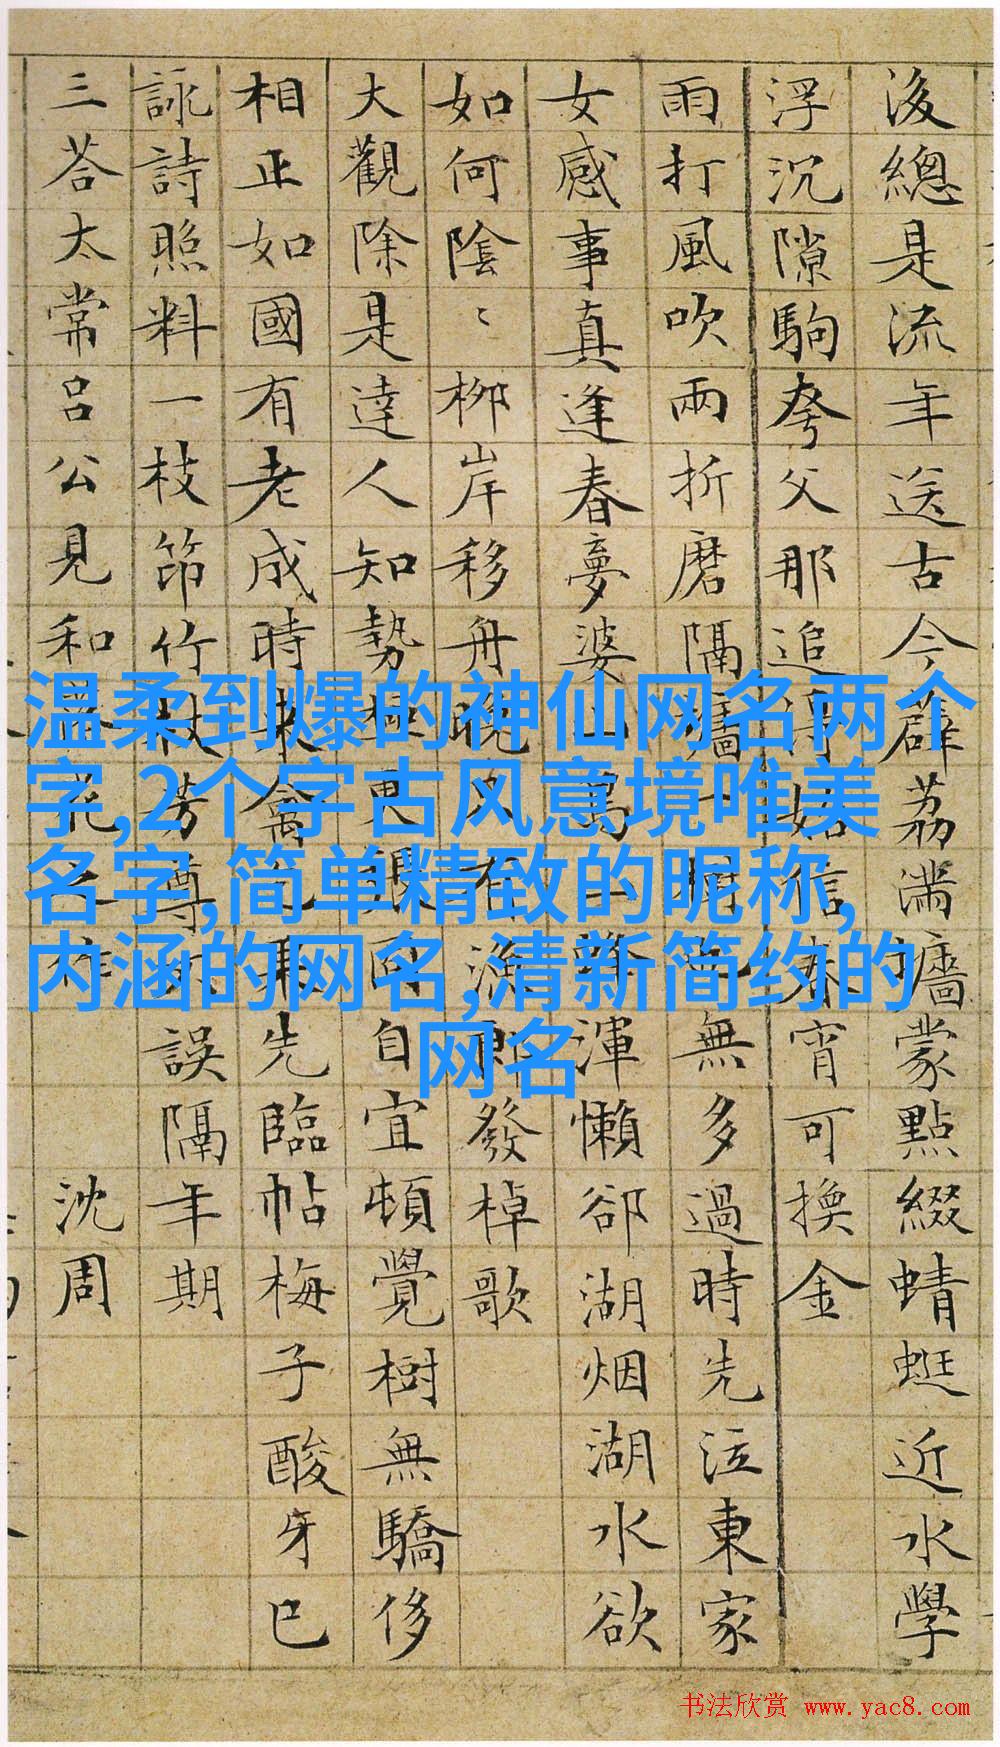 後總是流年送古今薜荔滿墻蒙點綴蜻蜓近水學
浮沉隙駒夸父那追得始信春宵可換金
雨打風吹兩折磨隔墻一樹無多過時先泣東家
女感事真逢春夢婆萬渾懶郤湖烟湖水欲
如何陰〻柳岸移舟晚又有漁郎發棹歌
大觀除是達人知勢極更艱回自宜頓覺樹無驕侈
相正如國有老成時來禽已取先臨帖梅子酸牙已
詠詩照料一枝笻竹杖芳尊如誤隔年期
三荅太常呂公見和落花之作 沈周
温柔到爆的神仙网名两个
字,2个字古风意境唯美
名字,简单精致的昵称,
内涵的网名,清新简约的
网名
书法欣赏 www.yac8.com